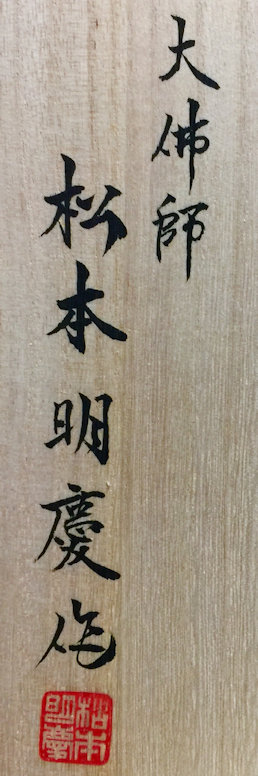 大佛師
松本明慶作
松本
明慶